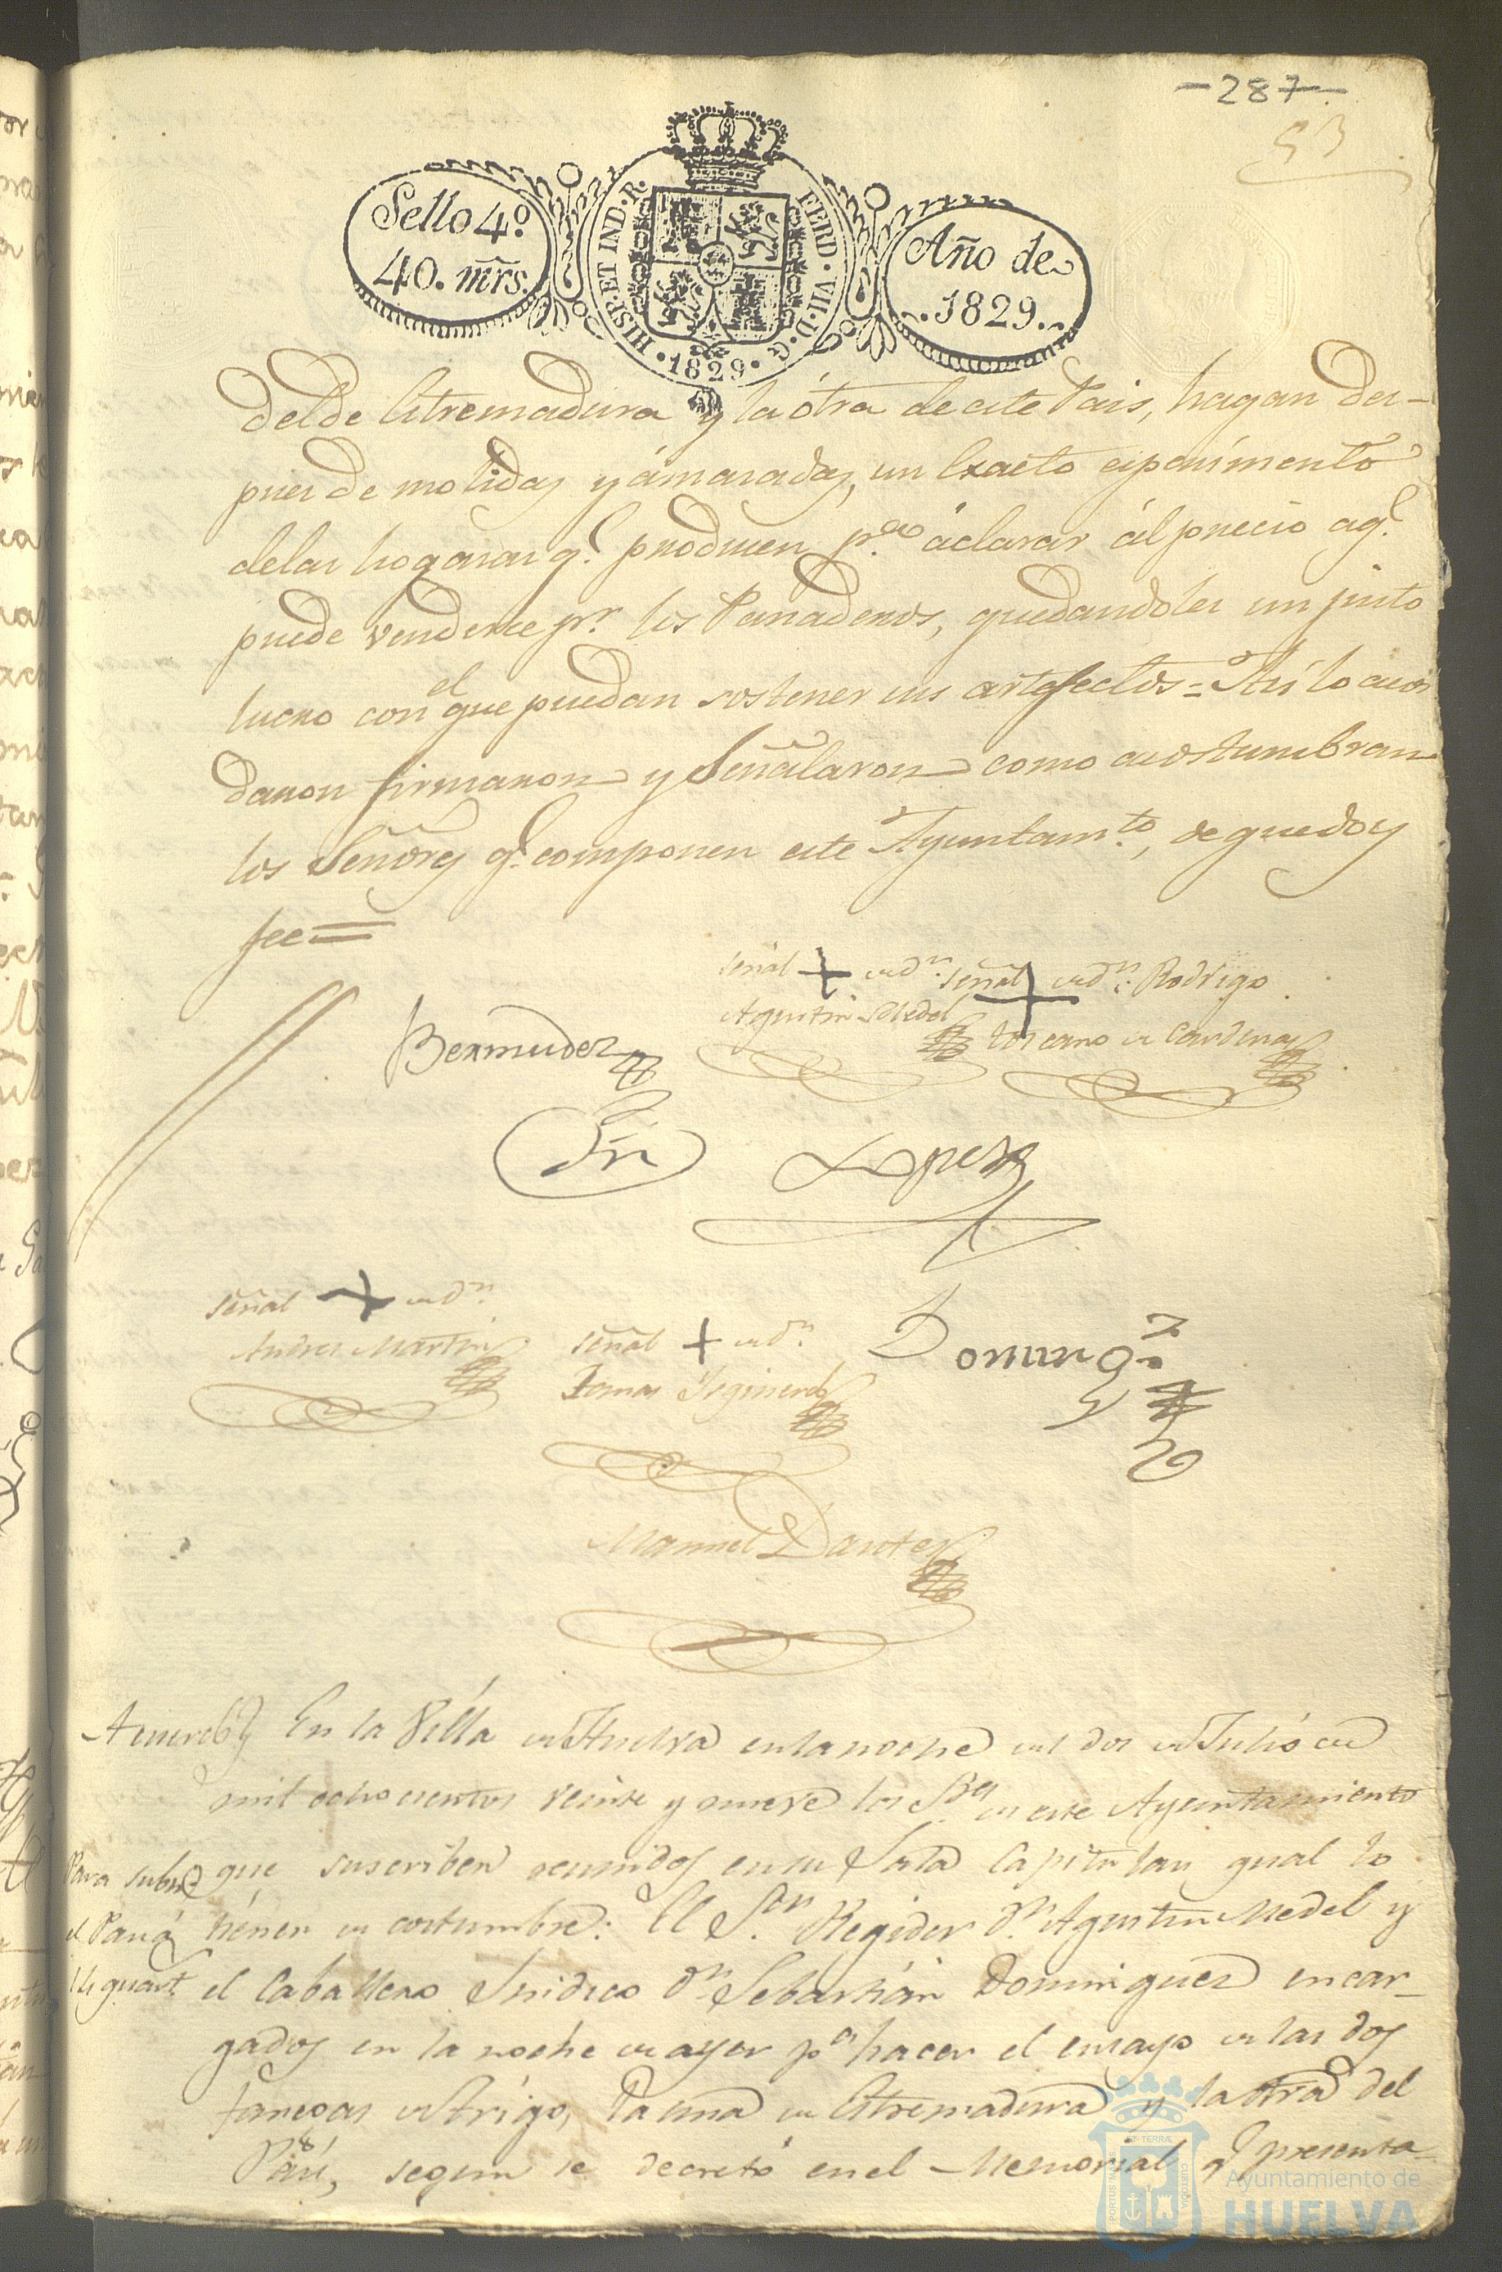 -287-
53
Sello 4º
40. mrs.
HISP. ET IND. R.
FERD. VII. D. G.
·1829·
Año de
1829.
del de Estremadura y la ótra de este Pais, hagan des-
pues de molidas y ámasadas, un Exacto esperimento
de las hogasas q.e producen p.a áclarar ál precio aq.e
puede venderse p.r los Panaderos, quedandoles un justo
lucro con el que puedan sostener sus artefectos = Así lo acor
daron firmaron y Señalaron como acostumbran
los Señores q.e componen este Ayuntam.to, de que doy
fee =
señal + de D.n
Agustin Medel
señal + de D.n Rodrigo
Toscano de Cardenas
Bermudez
Lopez
señal + de D.n
Andres Martin
señal + de D.n
Tomas
Doming.z
Manuel Dantes
Acuerdo En la Villa de Huelva en la noche del dos de Julio de
mil ocho cientos veinte y nueve los S.res de este Ayuntamiento
Para subir que suscriben reunidos en su Sala Capitular qual lo
el Pan á tiénen de costumbre: El S.or Regidor D.n Agustin Medel y
11 quart el Caballero Sindico D.n Sebastián Dominguez encar-
gados en la noche de ayer p.a hacer el ensayo de las dos
fanegas de trigo, la una de Estremadura y la otra del
País, segun se decretó en el Memorial q.e presenta-
PORTUS MARIS
ET TERRÆ
CUSTODIA
Ayuntamiento de
HUELVA